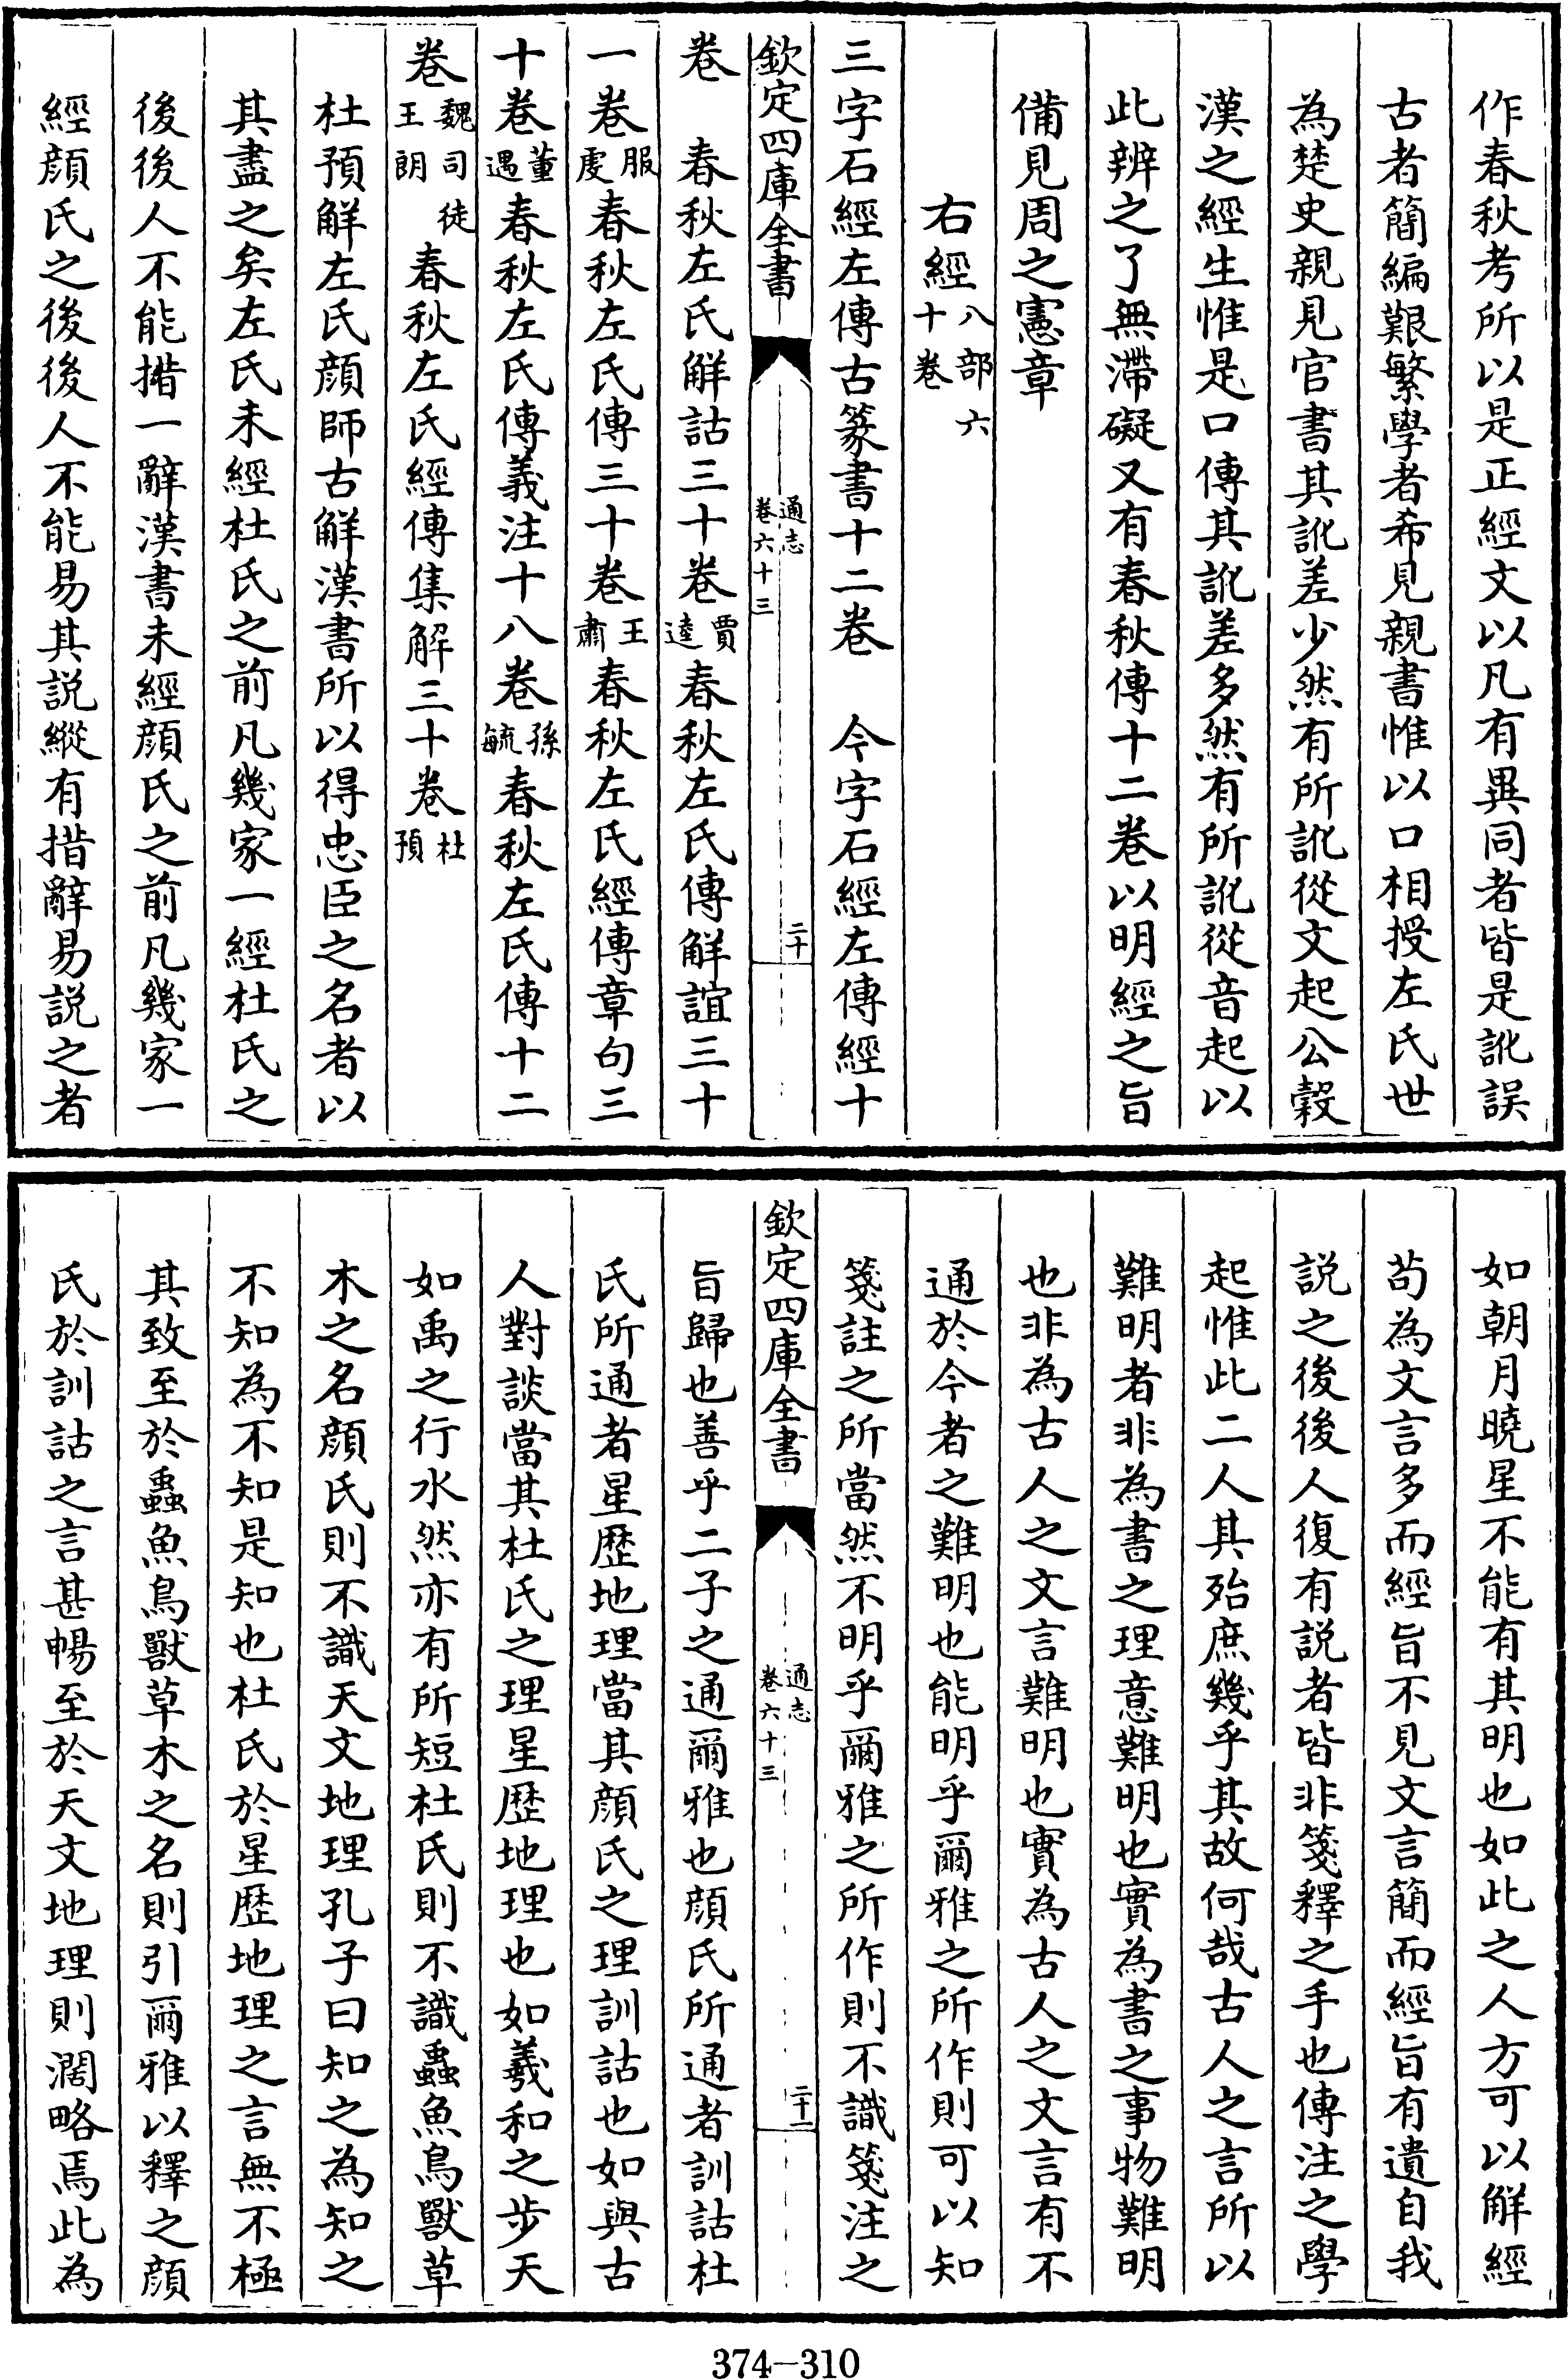 作春秋考所以是正經文以凡有異同者皆是訛誤
古者簡編艱繁學者希見親書惟以口相授左氏世
為楚史親見官書其訛差少然有所訛從文起公穀
漢之經生惟是口傳其訛差多然有所訛從音起以
此辨之了無滯礙又有春秋傳十二卷以明經之旨
備見周之憲章
右經八部六十卷
三字石經左傳古篆書十二卷　今字石經左傳經十
欽定四庫全書
通志
卷六十三
二十
卷　春秋左氏解詁三十卷賈逵春秋左氏傳解誼三十
一卷服虔春秋左氏傳三十卷王肅春秋左氏經傳章句三
十卷董遇春秋左氏傳義注十八卷孫毓春秋左氏傳十二
卷魏司徒王朗春秋左氏經傳集解三十卷杜預
杜預解左氏顔師古解漢書所以得忠臣之名者以
其盡之矣左氏未經杜氏之前凡幾家一經杜氏之
後後人不能措一辭漢書未經顔氏之前凡幾家一
經顔氏之後後人不能易其説縱有措辭易説之者
如朝月曉星不能有其明也如此之人方可以解經
苟為文言多而經旨不見文言簡而經旨有遺自我
説之後後人復有説者皆非箋釋之手也傳注之學
起惟此二人其殆庶幾乎其故何哉古人之言所以
難明者非為書之理意難明也實為書之事物難明
也非為古人之文言難明也實為古人之文言有不
通於今者之難明也能明乎爾雅之所作則可以知
箋註之所當然不明乎爾雅之所作則不識箋注之
欽定四庫全書
通志
卷六十三
二十一
旨歸也善乎二子之通爾雅也顔氏所通者訓詁杜
氏所通者星歴地理當其顔氏之理訓詁也如與古
人對談當其杜氏之理星歴地理也如羲和之步天
如禹之行水然亦有所短杜氏則不識蟲魚鳥獸草
木之名顔氏則不識天文地理孔子曰知之為知之
不知為不知是知也杜氏於星歴地理之言無不極
其致至於蟲魚鳥獸草木之名則引爾雅以釋之顔
氏於訓詁之言甚暢至於天文地理則濶略焉此為
374-310